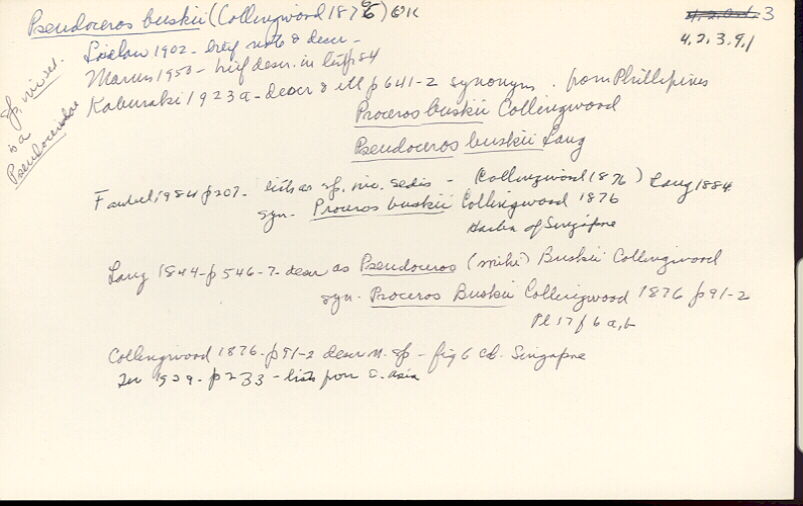 Pseudoceros buskii (Collingwood 1876) OK
3
4.2.3.9.1
Laidlaw 1902 - brief note & descr -
Marcus 1950 - brief descr. in list p 84
Kaburaki 1923a - descr & ill p 641-2 synonym. from Phillipines
Proceros buskii Collingwood
Pseudoceros buskii Lang
sp. inc. sed.
Pseudoceridae
Faubel 1984 p 207. lists as sp. inc. sedis - (Collingwood 1876) Lang 1884
syn - Proceros buskii Collingwood 1876
Harbor of Singapore
Lang 1844 - p 546-7 - descr as Pseudoceros (mihi) Buskii Collingwood
syn. Proceros Buskii Collingwood 1876 p 91-2
Pl 17 f 6 a, b
Collingwood 1876 - p 91-2 descr n. sp - fig 6 ab. Singapore
1929 - p 233 - lists from S. asia